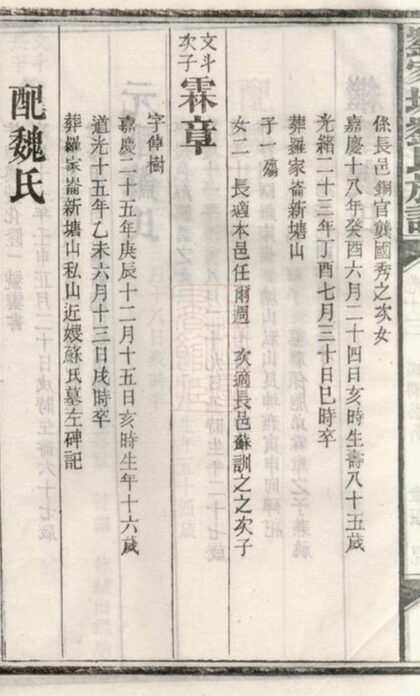 係長邑銅官龔國秀之次女
嘉慶十八年癸酉六月二十四日亥時生壽八十五歲
光緒二十三年丁酉七月三十日巳時卒
葬羅家崙新塘山
子一殤
女二 長適本邑任爾週 次適長邑蘇訓之之次子
文斗次子 霖章
字倬樹
嘉慶二十五年庚辰十二月十五日亥時生年十六歲
道光十五年乙未六月十三日戌時卒
葬羅家崙新塘山私山近嫂蘇氏墓左碑記
配魏氏